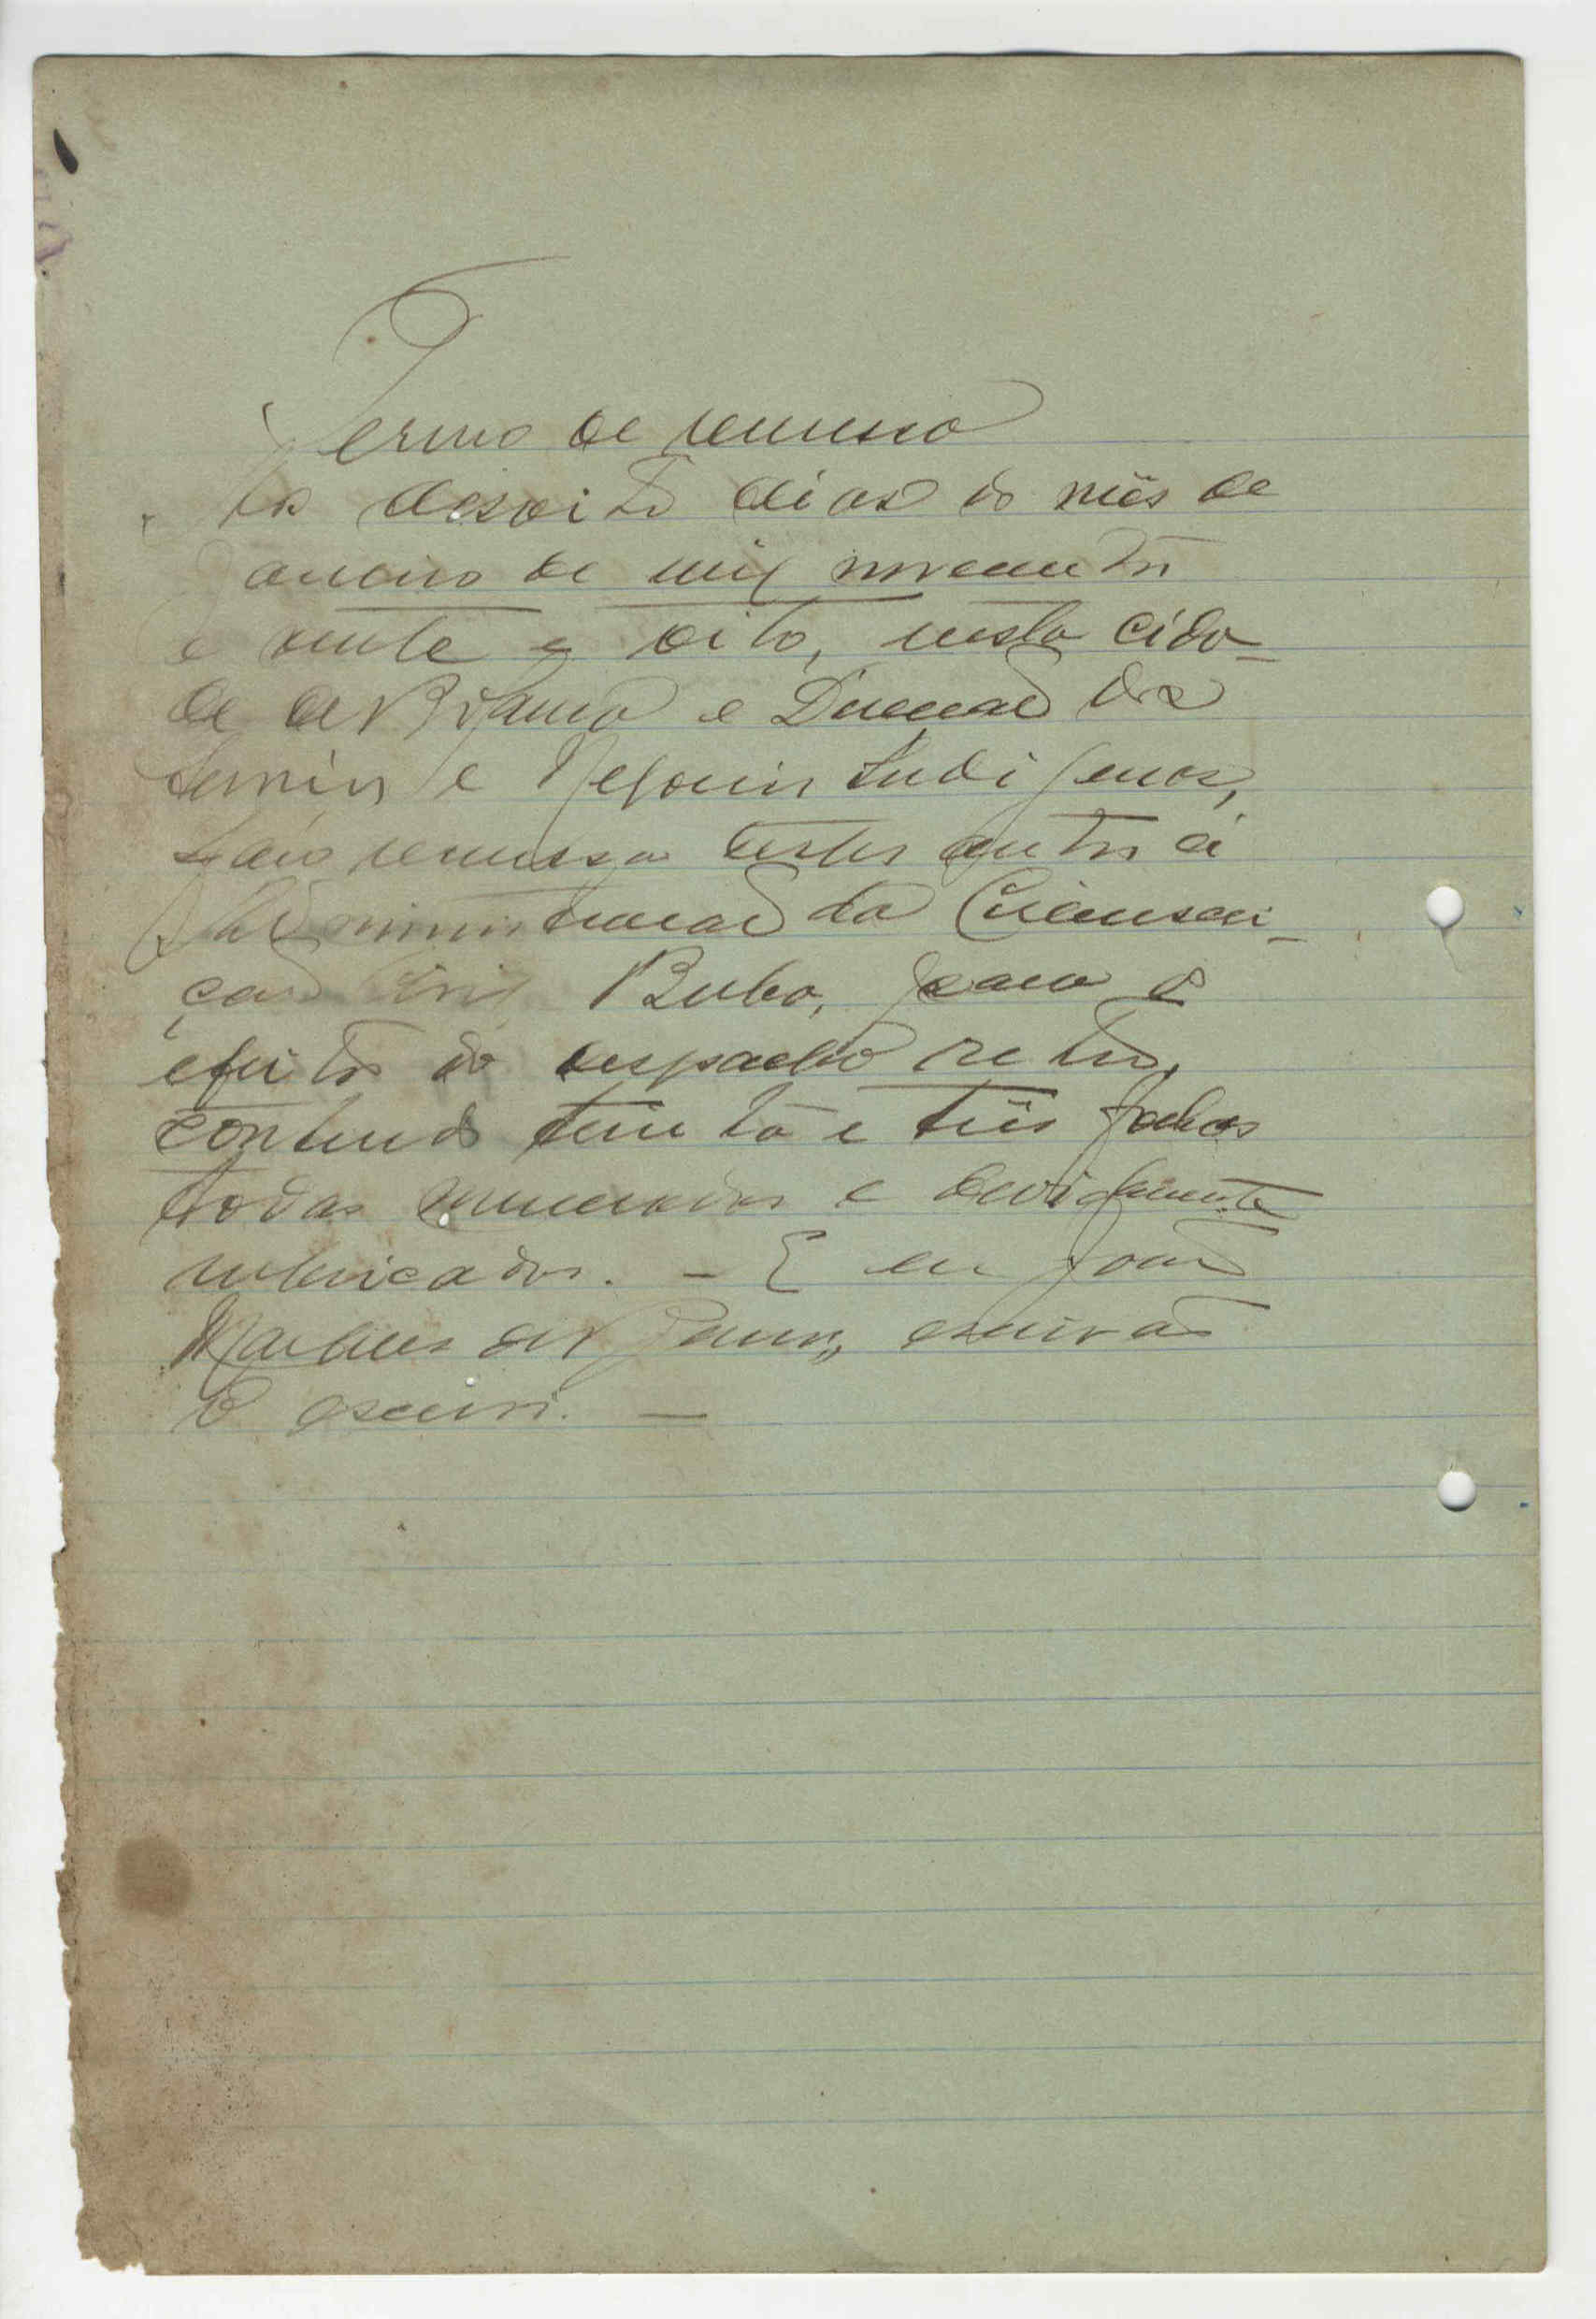 Termo de remessa
Aos desoito dias do mês de
Janeiro de mil novecentos
e vinte e oito, nesta cida-
de de Bolama e Direcção dos
Serviços e Negocios Indigenas,
faço remessa destes autos á
Administração da Circunscri-
ção Civil Buba, para os
efeitos do despacho retro,
contendo trinta e três folhas
todas numeradas e devidamente
rubricadas. - E eu João
Martins escrivão
o escrevi. —